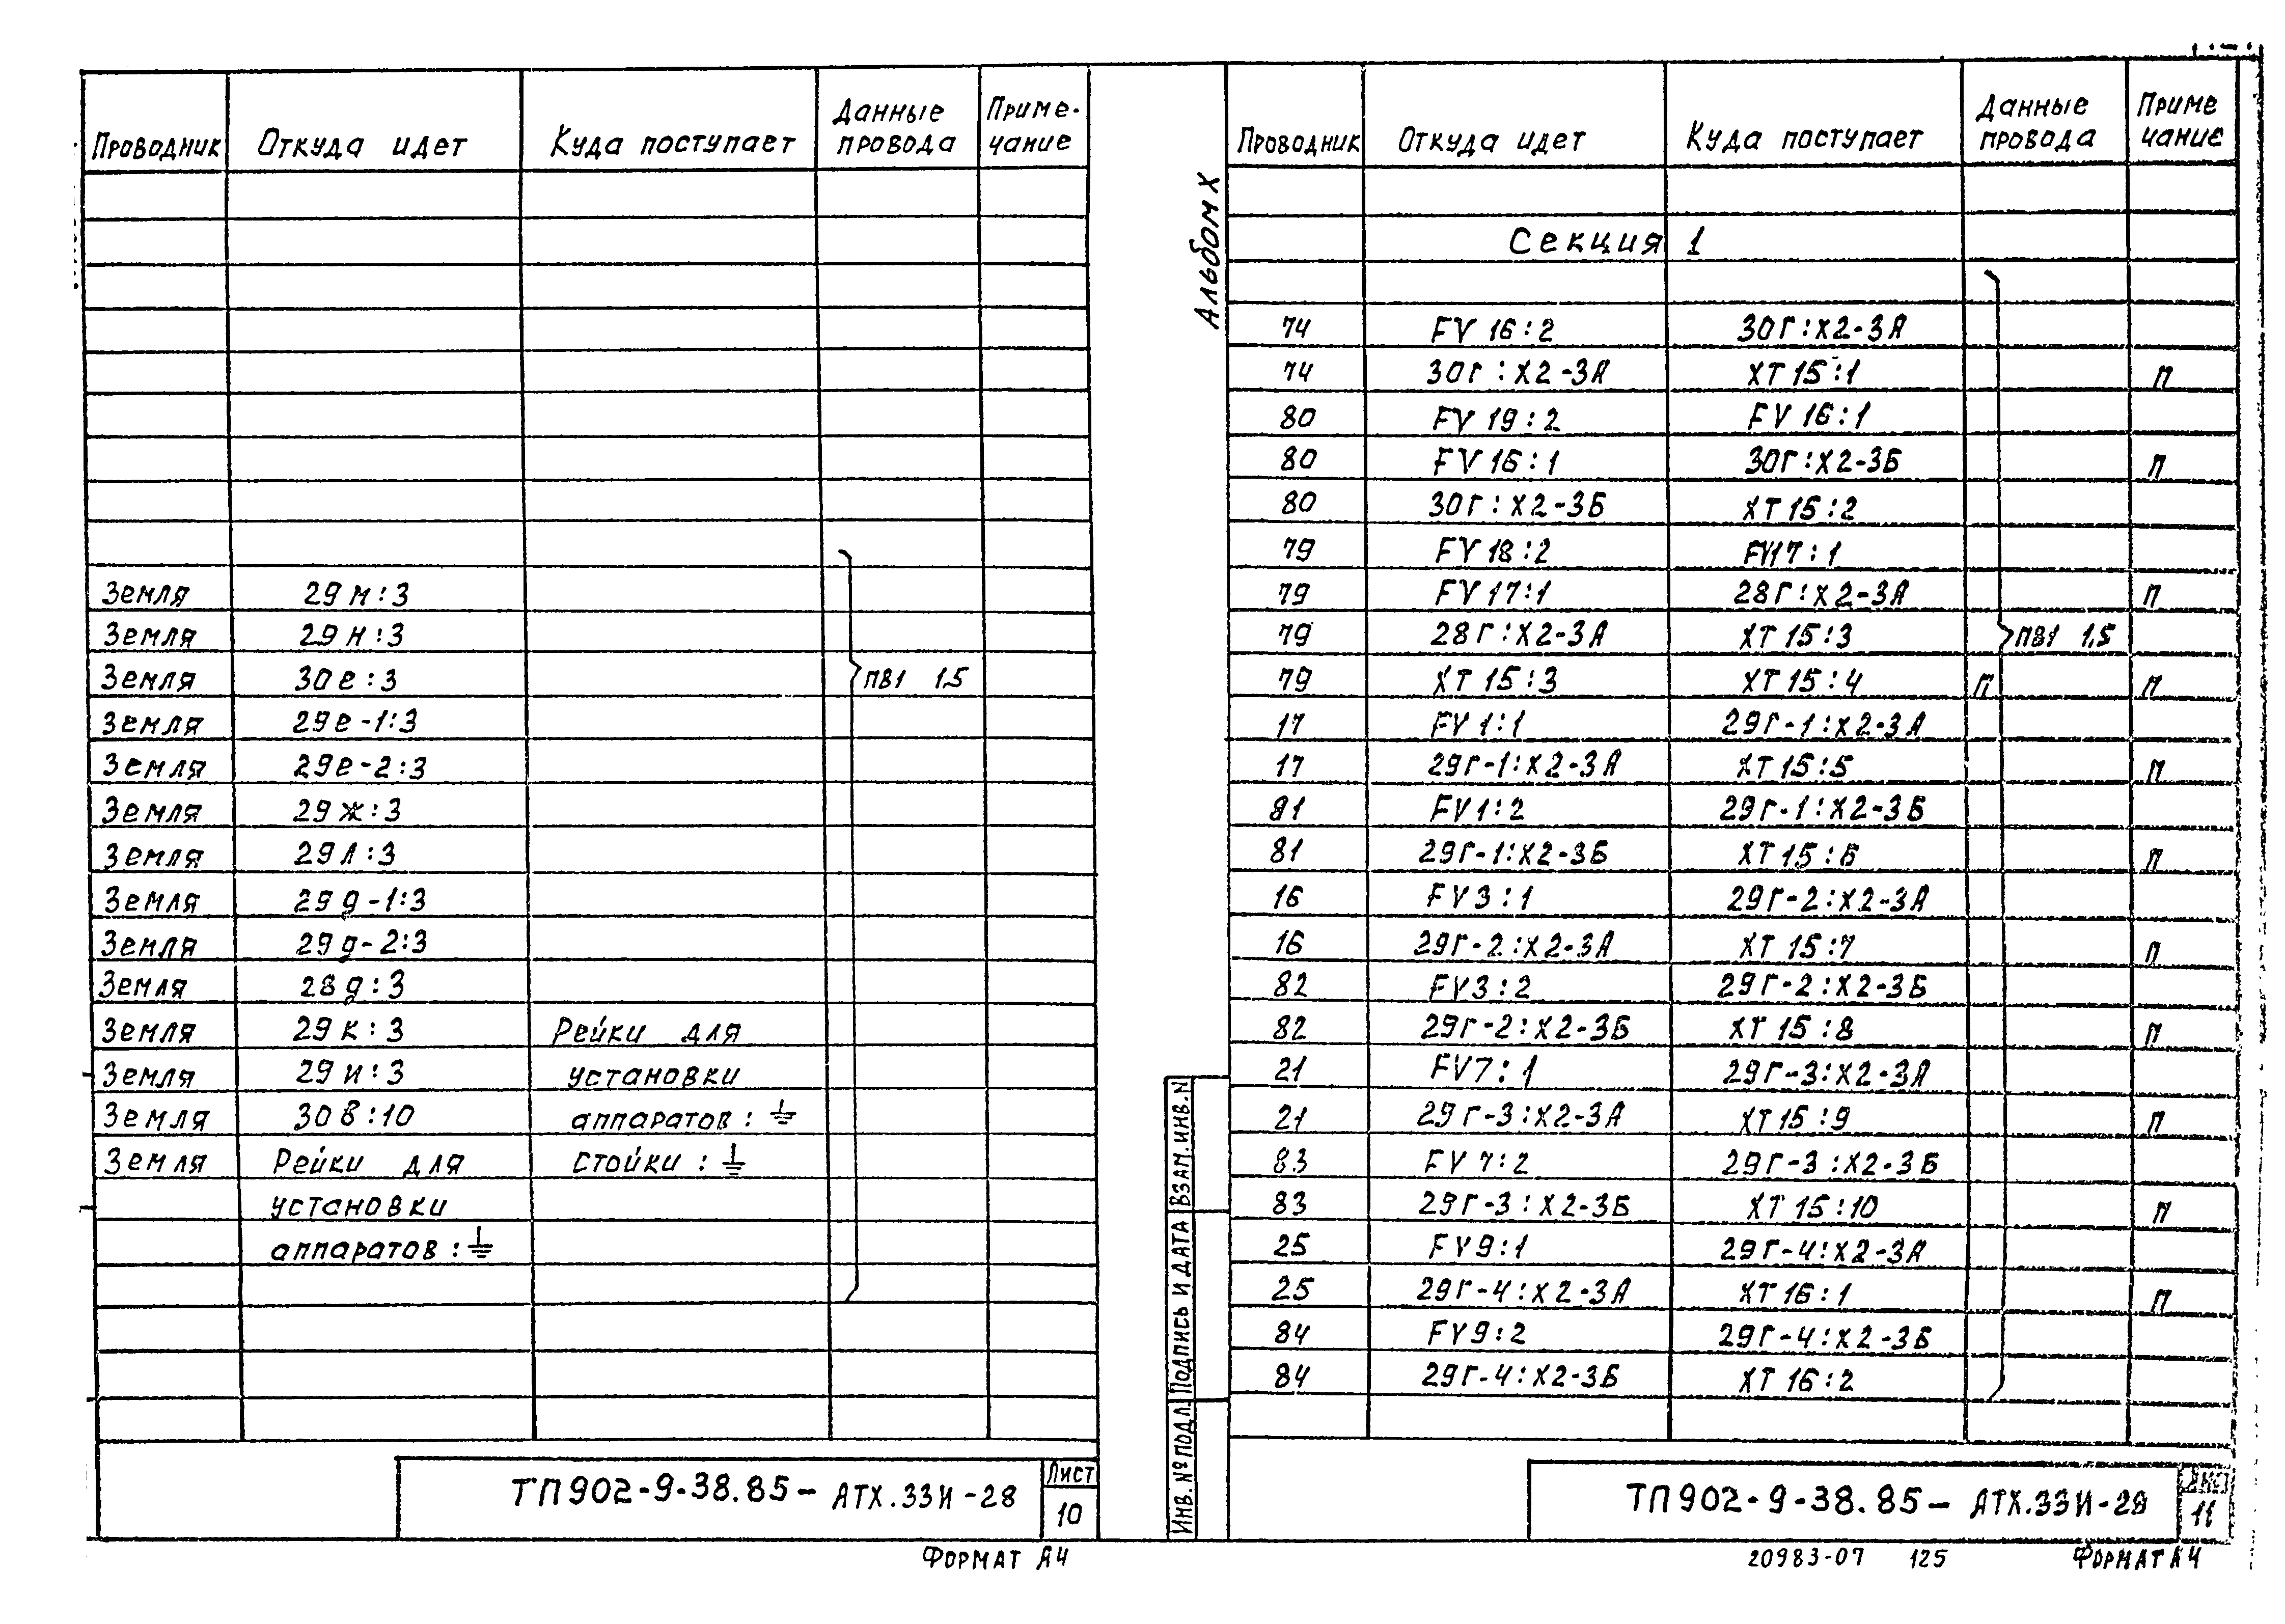 Проводник Откуда идет Куда поступает Данные провода Примечание
Земля 29м:3
Земля 29н:3
Земля 30е:3 ПВ1 1,5
Земля 29е-1:3
Земля 29е-2:3
Земля 29ж:3
Земля 29л:3
Земля 29д-1:3
Земля 29д-2:3
Земля 28д:3
Земля 29к:3 Рейки для
Земля 29и:3 установки
Земля 30в:10 аппаратов: ⏚
Земля Рейки для стойки: ⏚
установки
аппаратов: ⏚
ТП902-9-38.85- АТХ.33И-28
Лист
10
Формат А4
Альбом X
Проводник Откуда идет Куда поступает Данные провода Приме чание
Секция 1
74 FV16:2 30Г:Х2-3А
74 30Г:Х2-3А ХТ15:1 П
80 FV19:2 FV16:1
80 FV16:1 30Г:Х2-3Б П
80 30Г:Х2-3Б ХТ15:2
79 FV18:2 FV17:1
79 FV17:1 28Г:Х2-3А П
79 28Г:Х2-3А ХТ15:3 ПВ1 1,5
79 ХТ15:3 ХТ15:4 П П
17 FV1:1 29Г-1:Х2-3А
17 29Г-1:Х2-3А ХТ15:5 П
81 FV1:2 29Г-1:Х2-3Б
81 29Г-1:Х2-3Б ХТ15:6 П
16 FV3:1 29Г-2:Х2-3А
16 29Г-2:Х2-3А ХТ15:7 П
82 FV3:2 29Г-2:Х2-3Б
82 29Г-2:Х2-3Б ХТ15:8 П
21 FV7:1 29Г-3:Х2-3А
21 29Г-3:Х2-3А ХТ15:9 П
83 FV7:2 29Г-3:Х2-3Б
83 29Г-3:Х2-3Б ХТ15:10 П
25 FV9:1 29Г-4:Х2-3А
25 29Г-4:Х2-3А ХТ16:1 П
84 FV9:2 29Г-4:Х2-3Б
84 29Г-4:Х2-3Б ХТ16:2
Инв. № подл. Подпись и дата Взам. инв. N
ТП902-9-38.85- АТХ.33И-28
Лист
11
20983-07 125 Формат А4